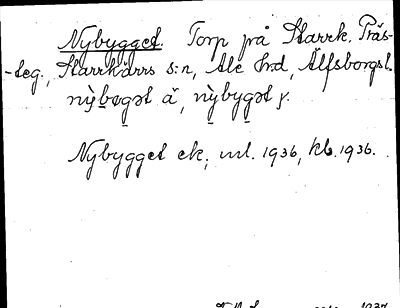 Nybygget. Torp på Starrk. Präs-
-teg., Starrkärrs s:n, Ale hrd, Älfsborgs l.
nỳbøgət ä, nỳbygət y.
Nybygget ek, uil. 1936, kb. 1936.
1937